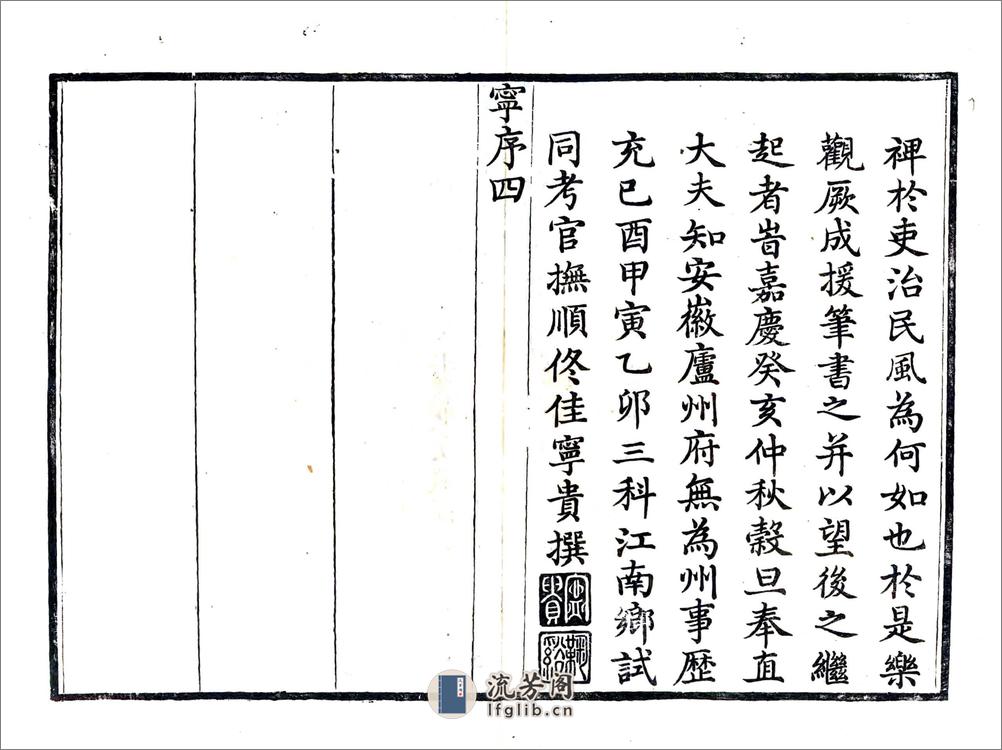 裨於吏治民風為何如也於是樂
觀厥成援筆書之并以望後之繼
起者旹嘉慶癸亥仲秋穀旦奉直
大夫知安徽廬州府無為州事歷
充己酉甲寅乙卯三科江南鄉試
同考官撫順佟佳寧貴撰
寧貴
寧序四
流芳阁
lfglib.cn